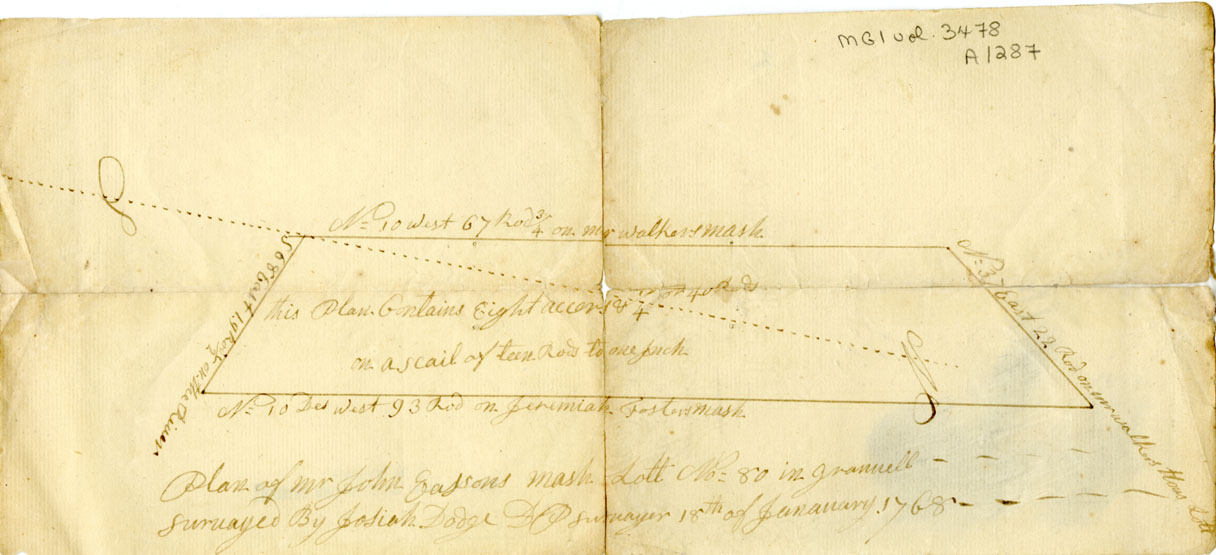 MG1 vol. 3478
A1287
No 10 west 67 Rod 3/4 on mr walkers mash
S 68 East 19 Rod on the River
No 37 East 22 Rod on mr walkers Hous Lott
this Plan Contains Eight accers & 1/4 40 Rod
on a scail of teen Rods to one Inch
No 10 Des west 93 Rod on Jeremiah Fosters mash
Plan of mr John Eassons mash Lott No 80 in granuell
survayed By Josiah Dodge D P survayer 18th of Janauary 1768